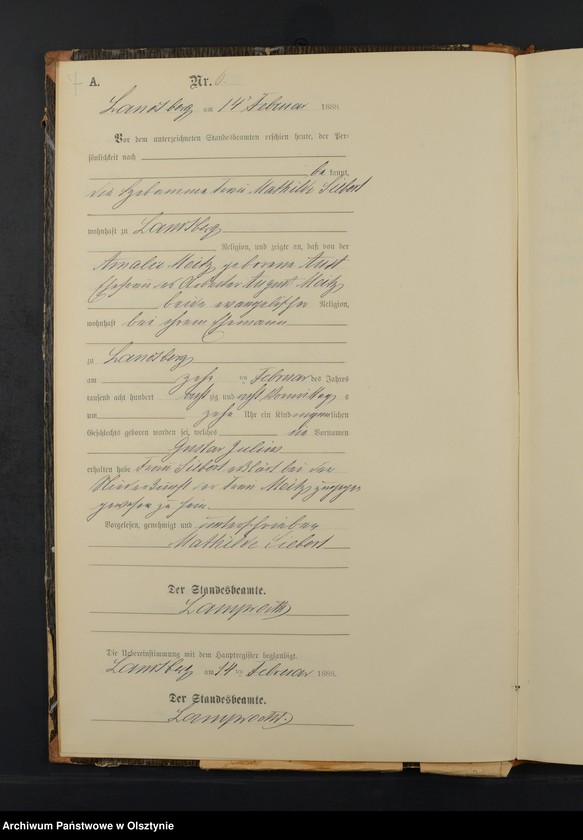 A. Nr. 6.
Landsberg am 14 Februar 1888.
Vor dem unterzeichneten Standesbeamten erschien heute, der Per-
sönlichkeit nach
be kannt,
die Hebamme Frau Mathilde Siebert
wohnhaft zu Landsberg
Religion, und zeigte an, daß von der
Amalie Meitz geborene Aust
Ehefrau des Arbeiter August Meitz
beide evangelischer Religion,
wohnhaft bei ihrem Ehemann
zu Landsberg
am Februar des Jahres
tausend acht hundert acht zig und acht Vormittags
um Uhr ein Kind männlichen
Geschlechts geboren worden sei, welches die Vornamen
Gustav Julius
erhalten habe Frau Siebert erklärt bei der
Niederkunft der Frau Meitz zugegen
gewesen zu sein.
Vorgelesen, genehmigt und unterschrieben
Mathilde Siebert
Der Standesbeamte.
Die Uebereinstimmung mit dem Hauptregister beglaubigt.
Landsberg am 14 ten Februar 1888.
Der Standesbeamte.
Archiwum Państwowe w Olsztynie